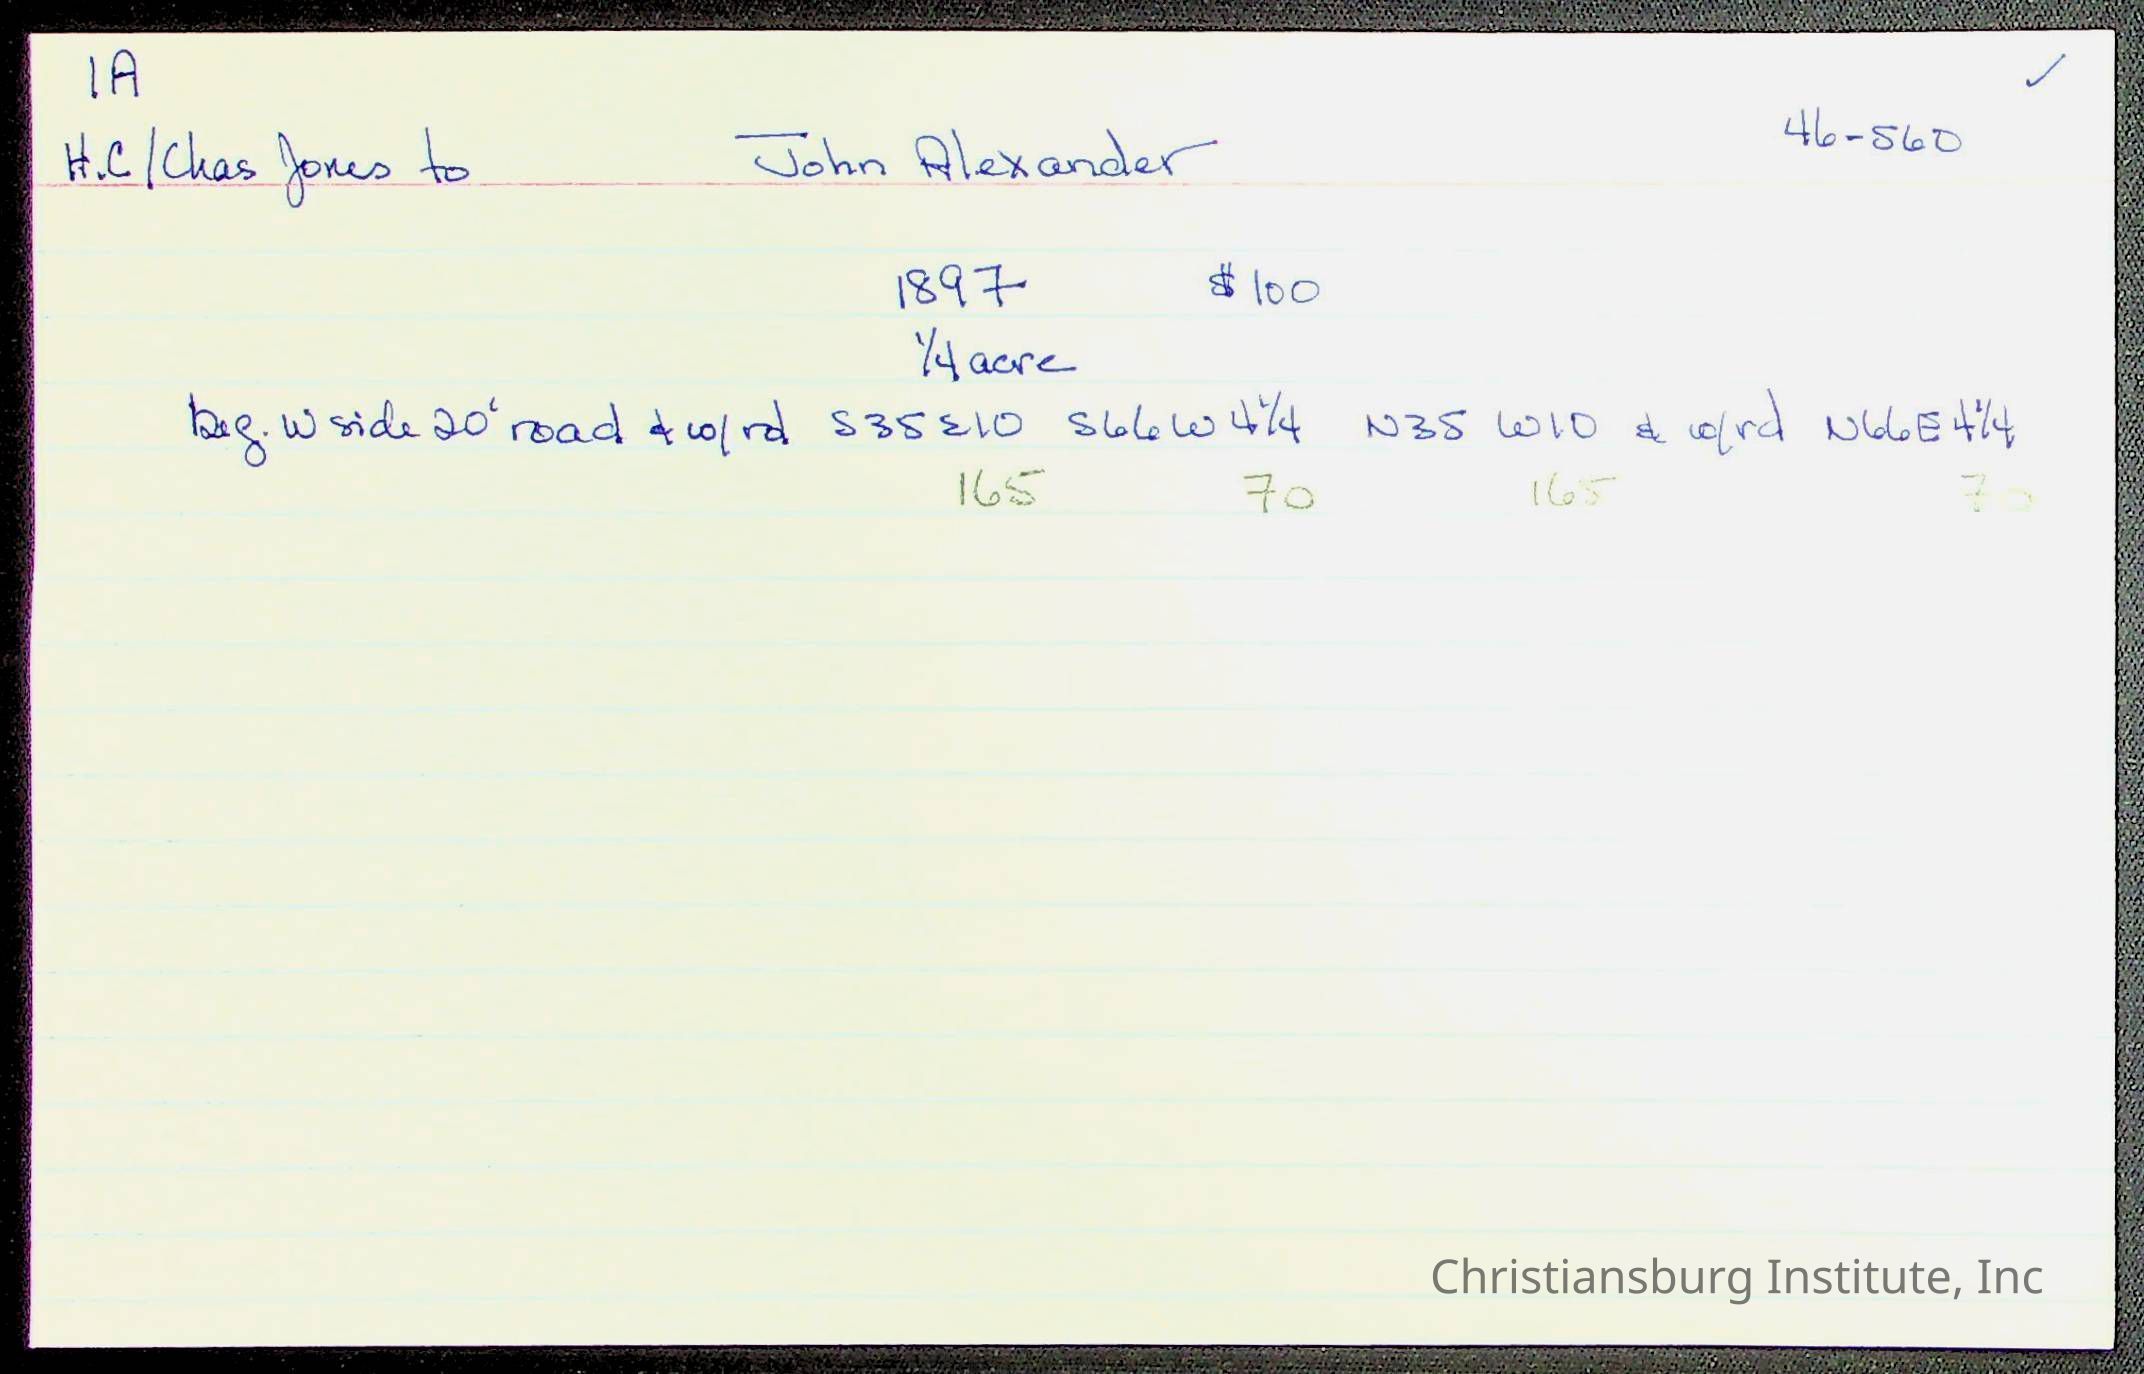 1A ✓
46-560
H.C/Chas Jones to John Alexander
1897 $100
1/4 acre
beg. W side 20' road & w/rd S35E10 S66W4 1/4 N35W10 & w/rd N66E4 1/4
165 70 165 70
Christiansburg Institute, Inc